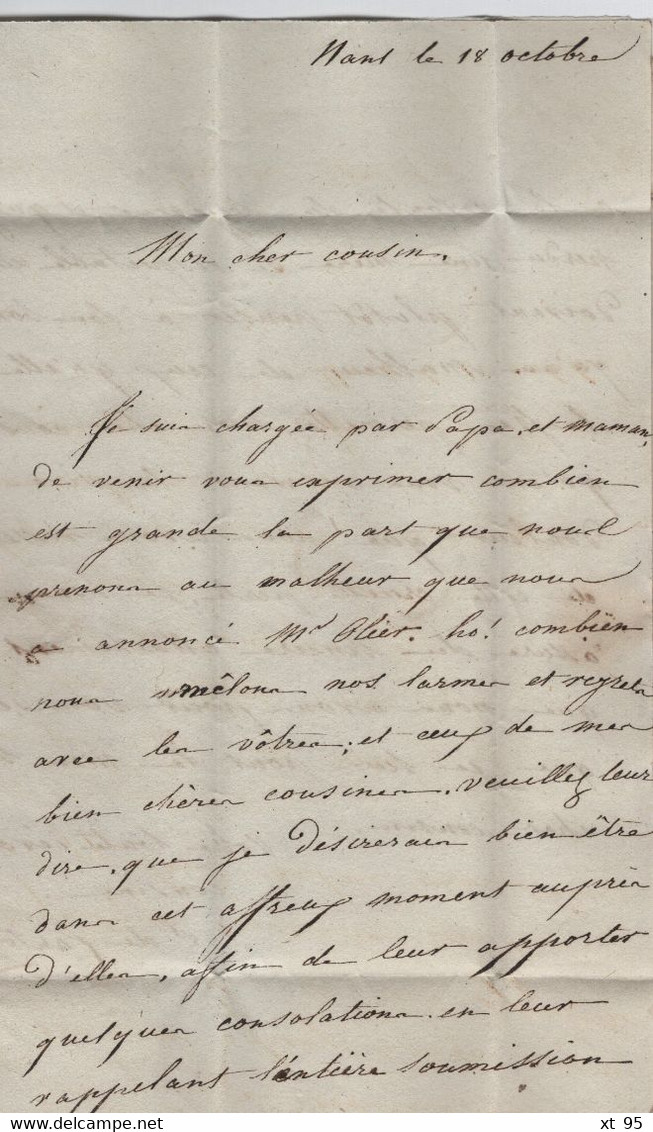 Nant le 18 octobre
Mon cher cousin.
Je suis chargée par Papa, et maman,
de venir vous exprimer combien
est grande la part que nous
prenons au malheur que nous
a annoncé Mr Olier. ho! combien
nous mêlons nos larmes et regrets
avec les vôtres; et ceux de mes
bien chères cousines. veuillez leur
dire, que je désirerais bien être
dans cet affreux moment auprès
d'elles, affin de leur apporter
quelques consolations en leur
rappelant l'entière soumission
xt 95